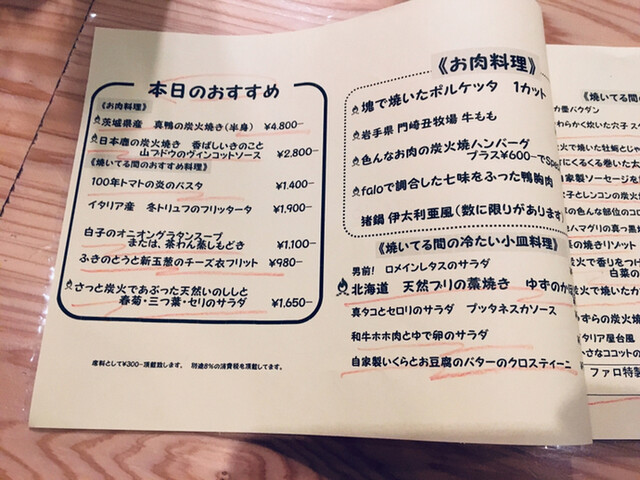 本日のおすすめ
《お肉料理》
茨城県産 真鴨の炭火焼き(半身) ¥4.800-
日本鹿の炭火焼き 香ばしいきのこと
山ブドウのヴィンコットソース ¥2.800-
《焼いてる間のおすすめ料理》
100年トマトの炎のパスタ ¥1.400-
イタリア産 冬トリュフのフリッタータ ¥1.900-
白子のオニオングラタンスープ
または、茶わん蒸しもどき ¥1.100-
ふきのとうと新玉葱のチーズ衣フリット ¥980-
さっと炭火であぶった天然いのししと
春菊・三つ葉・セリのサラダ ¥1.650-
席料として¥300-頂戴致します。 別途8%の消費税も頂戴してます。
《お肉料理》
塊で焼いたポルケッタ 1カット
岩手県 門崎丑牧場 牛もも
色んなお肉の炭火焼ハンバーグ
プラス¥600-でSpec
faloで調合した七味をふった鴨胸肉
猪鍋 伊太利亜風(数に限りがあります)
《焼いてる間の冷たい小皿料理》
男前! ロメインレタスのサラダ
北海道 天然ブリの藁焼き ゆずのか
真タコとセロリのサラダ プッタネスカソース
和牛ホホ肉とゆで卵のサラダ
自家製いくらとお豆腐のバターのクロスティーニ
《焼いてる間の
カ墨バクダン
やわらかく炊いた穴子 ス
で焼いた牡蛎とじゃ
にくるくる巻いた太
自家製ソーセージを
子とレンコンの炭火
の色んな部位のコ
ハマグリの真っ黒
の焼きリゾット
火で香りをつけ
白菜の
で焼いたか
ずらの炭火
タリア屋台風
小さなココットの
ファロ特製